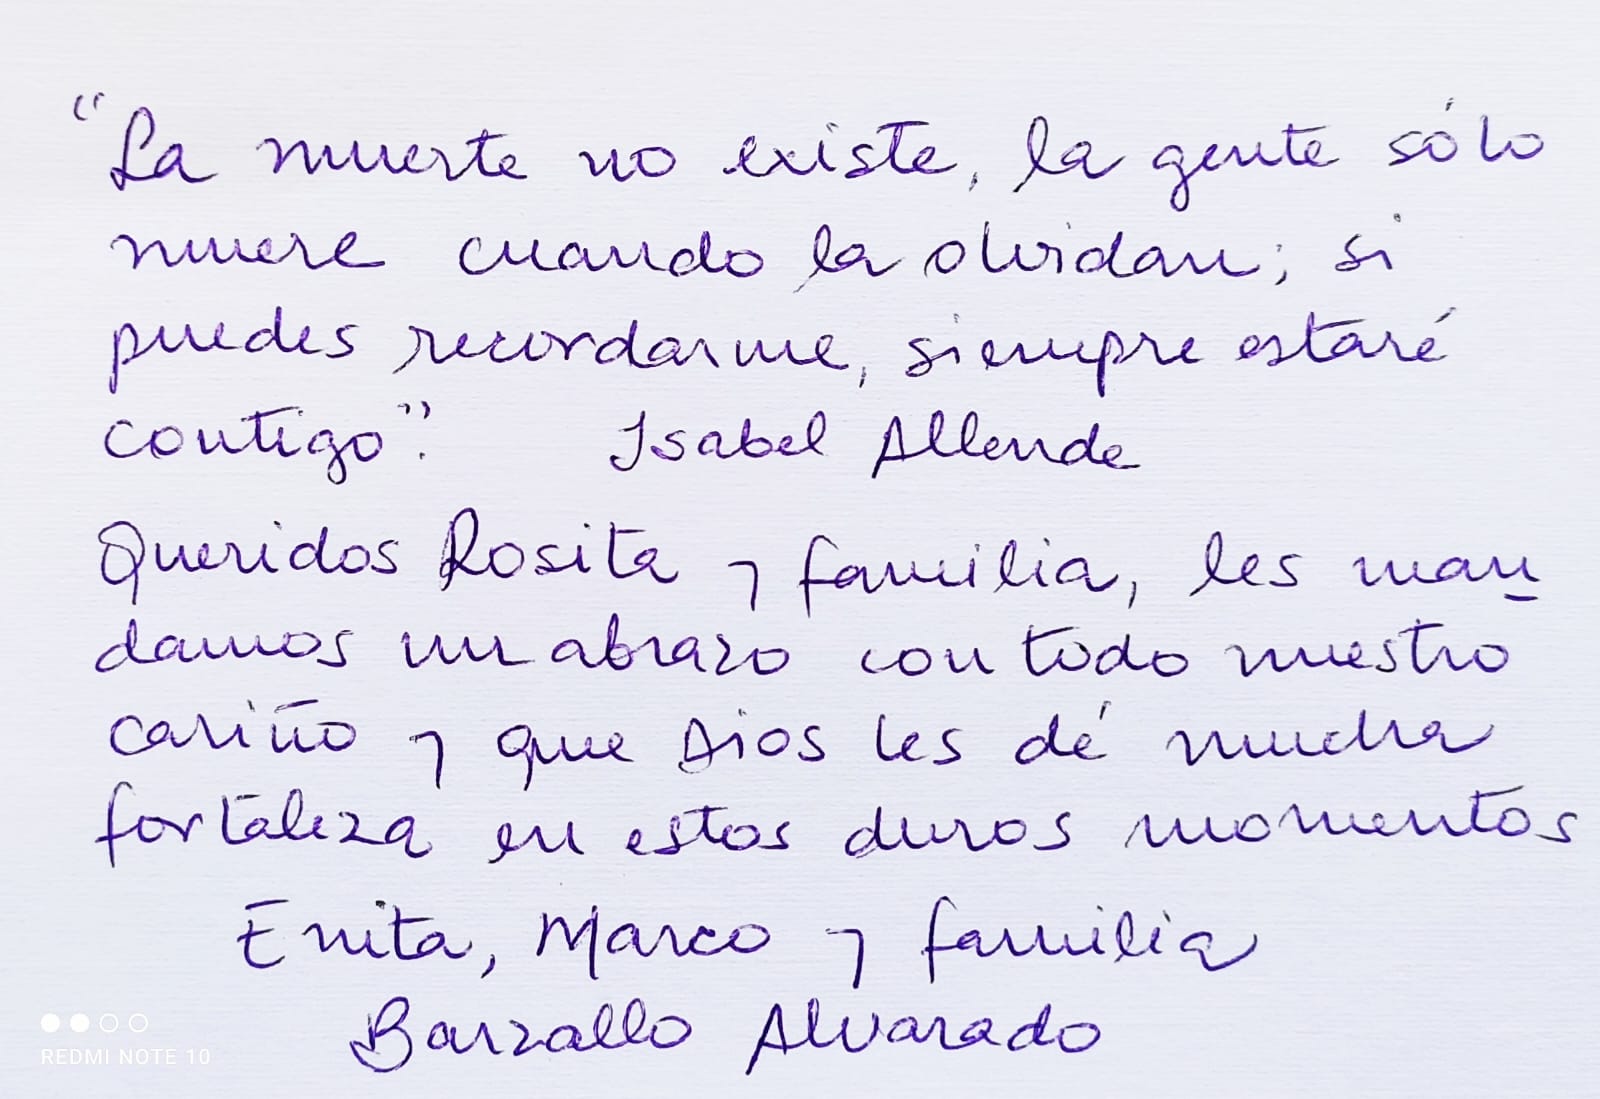 “La muerte no existe, la gente sólo
muere cuando la olvidan; si
puedes recordarme, siempre estaré
contigo”.   Isabel Allende
Queridos Rosita y familia, les man
damos un abrazo con todo nuestro
cariño y que Dios les dé mucha
fortaleza en estos duros momentos
Enita, Marco y familia
Barzallo Alvarado
REDMI NOTE 10